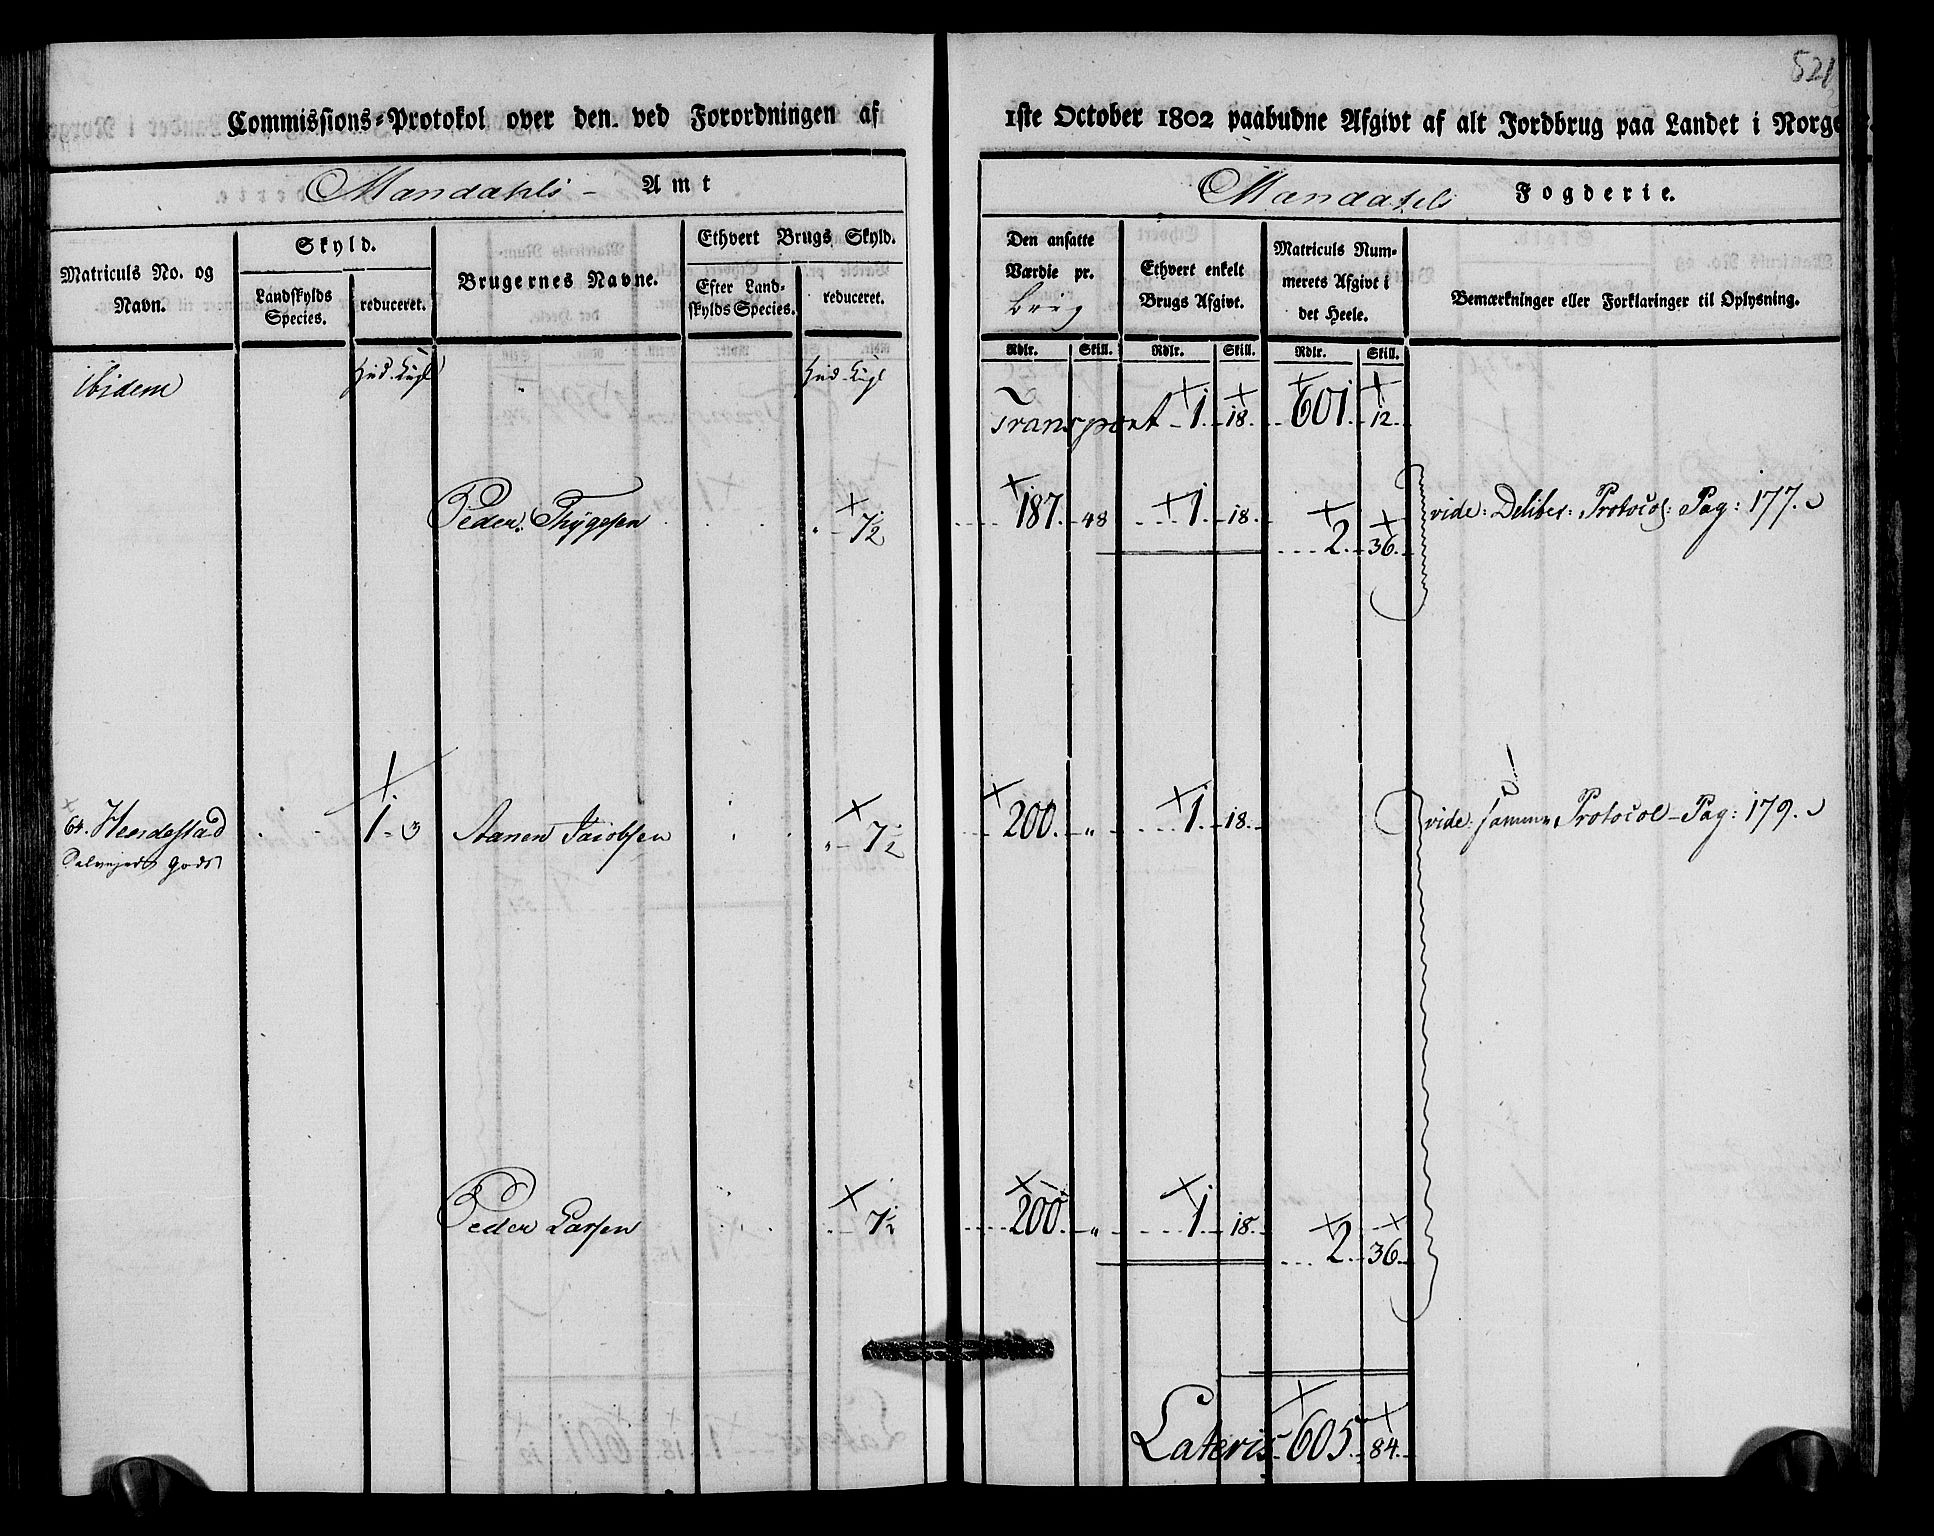 521
Commissions-Protokol over den ved Forordningen af 1ste October 1802 paabudne Afgivt af alt Jordbrug paa Landet i Norge.
Mandahls Amt
Mandahls Fogderie.
Matriculs No. og Navn.
Skyld.
Landskylds Species.
reduceret.
Brugernes Navne.
Ethvert Brugs Skyld.
Efter Landskylds Species.
reduceret.
Den ansatte Værdie pr. Brug
Ethvert enkelt Brugs Afgivt.
Matriculs Nummerets Afgivt i det Heele.
Bemærkninger eller Forklaringer til Oplysning.
Rdlr. Skill. Rdlr. Skill. Rdlr. Skill.
Ibidem
Transport 1. 18. 601. 12.
Peder Thygesen 7½ 187. 48 1. 18. 2. 36. vide: Deliber: Protocol: Pag: 177.
64. 1. 3 Aanen Jacobsen 7½ 200. „ 1. 18. vide: samme Protocol Pag: 179.
Selvejer Gods
Peder Larsen 7½ 200. „ 1. 18. 2. 36.
Lateris 605. 84.